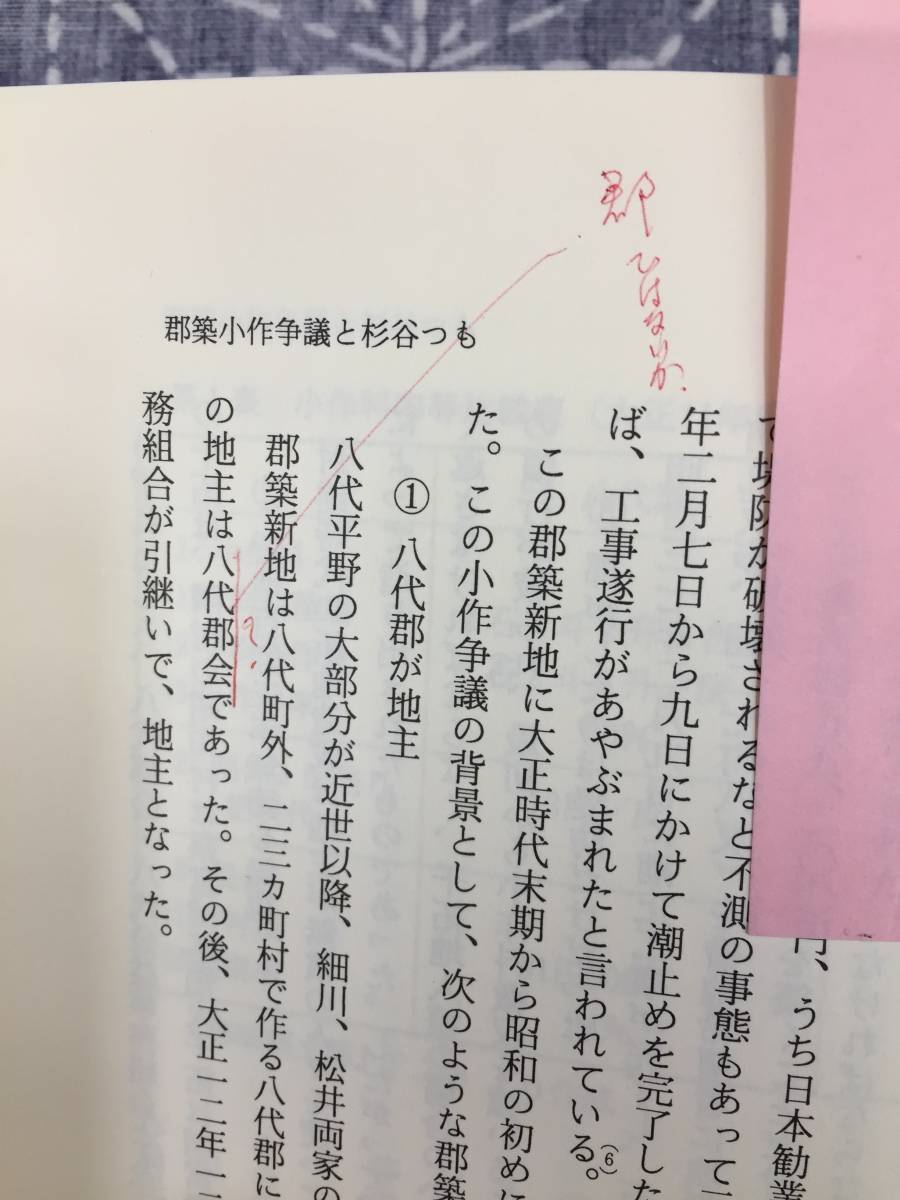 郡
ではないか
郡築小作争議と杉谷つも
円、うち日本勧業
で堤防が破壊されるなど不測の事態もあって
年二月七日から九日にかけて潮止めを完了した
ば、工事遂行があやぶまれたと言われている。(6)
この郡築新地に大正時代末期から昭和の初めに
た。この小作争議の背景として、次のような郡築
① 八代郡が地主
八代平野の大部分が近世以降、細川、松井両家の
郡築新地は八代町外、二三カ町村で作る八代郡に
の地主は八代郡会であった。その後、大正一二年一
?
務組合が引継いで、地主となった。